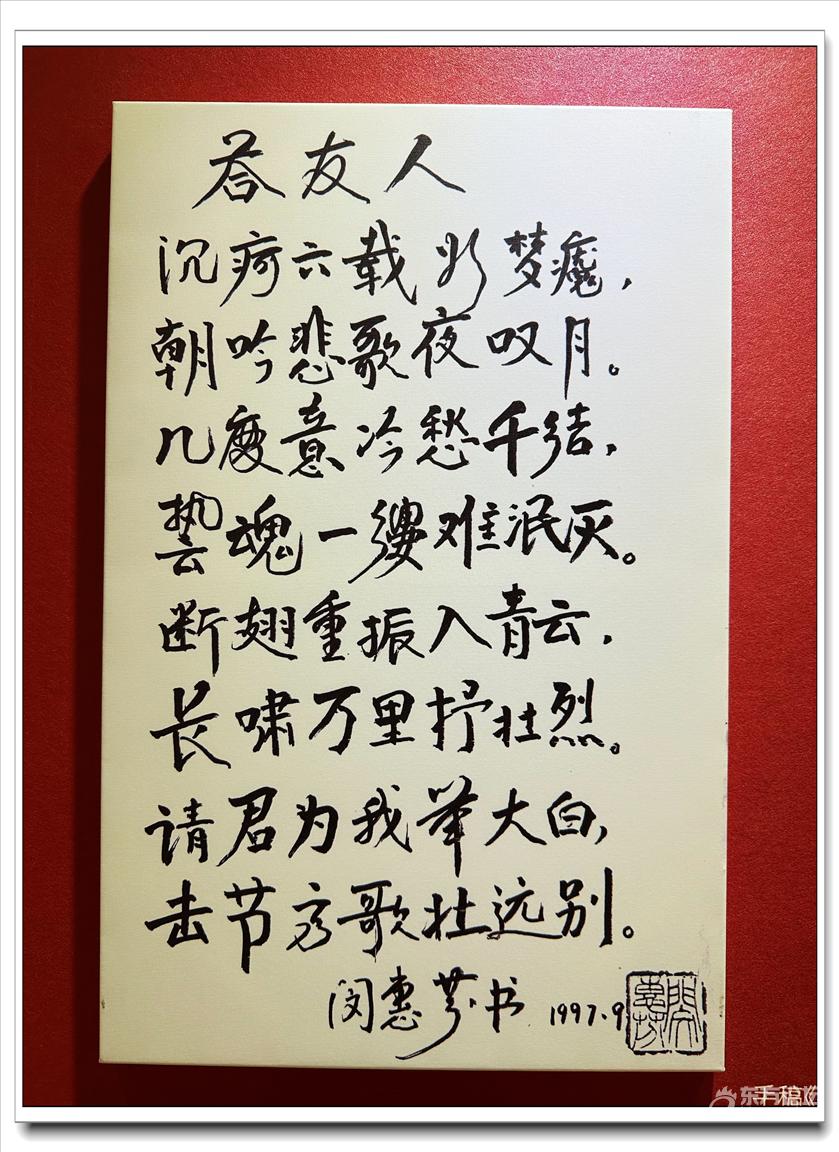 答友人
沉疴六载如梦魇，
朝吟悲歌夜叹月。
几度意冷愁千结，
艺魂一缕难泯灭。
断翅重振入青云，
长啸万里抒壮烈。
请君为我举大白，
击节高歌壮远别。
闵惠芬书 1997.9
闵惠芬
东方
手稿《